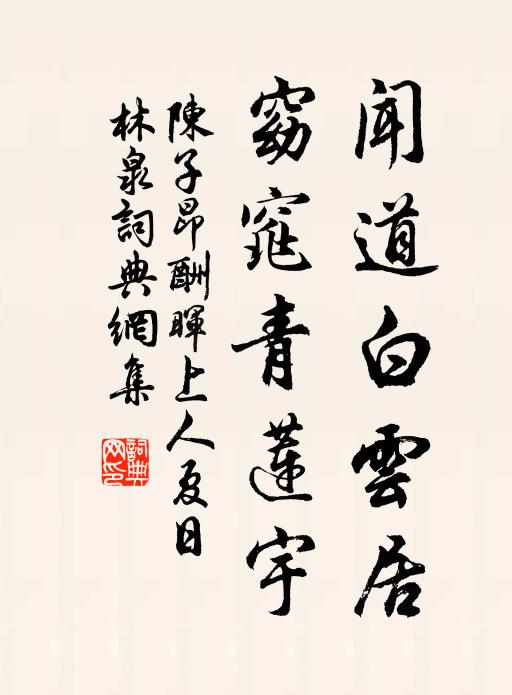 闻道白雲居
窈窕青蓮宇
陳子昂酬暉上人夏日
林泉詞典網集
詞典网印